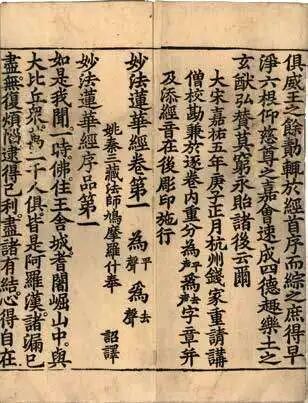 俱威王之餘勳輒於經首序而綜之庶得早
淨六根仰慈尊之嘉會速成四德趣樂土之
玄猷弘贊莫窮永貽諸後云爾
大宋嘉祐五年庚子正月杭州錢家重請講
僧校勘兼於逐卷內重分為平聲為去聲字章并
及添經音在後彫印施行
妙法蓮華經卷第一 為平聲 為去聲
姚秦三藏法師鳩摩羅什奉 詔譯
妙法蓮華經序品第一
如是我聞一時佛住王舍城耆闍崛山中與
大比丘衆萬二千人俱皆是阿羅漢諸漏已
盡無復煩惱逮得己利盡諸有結心得自在